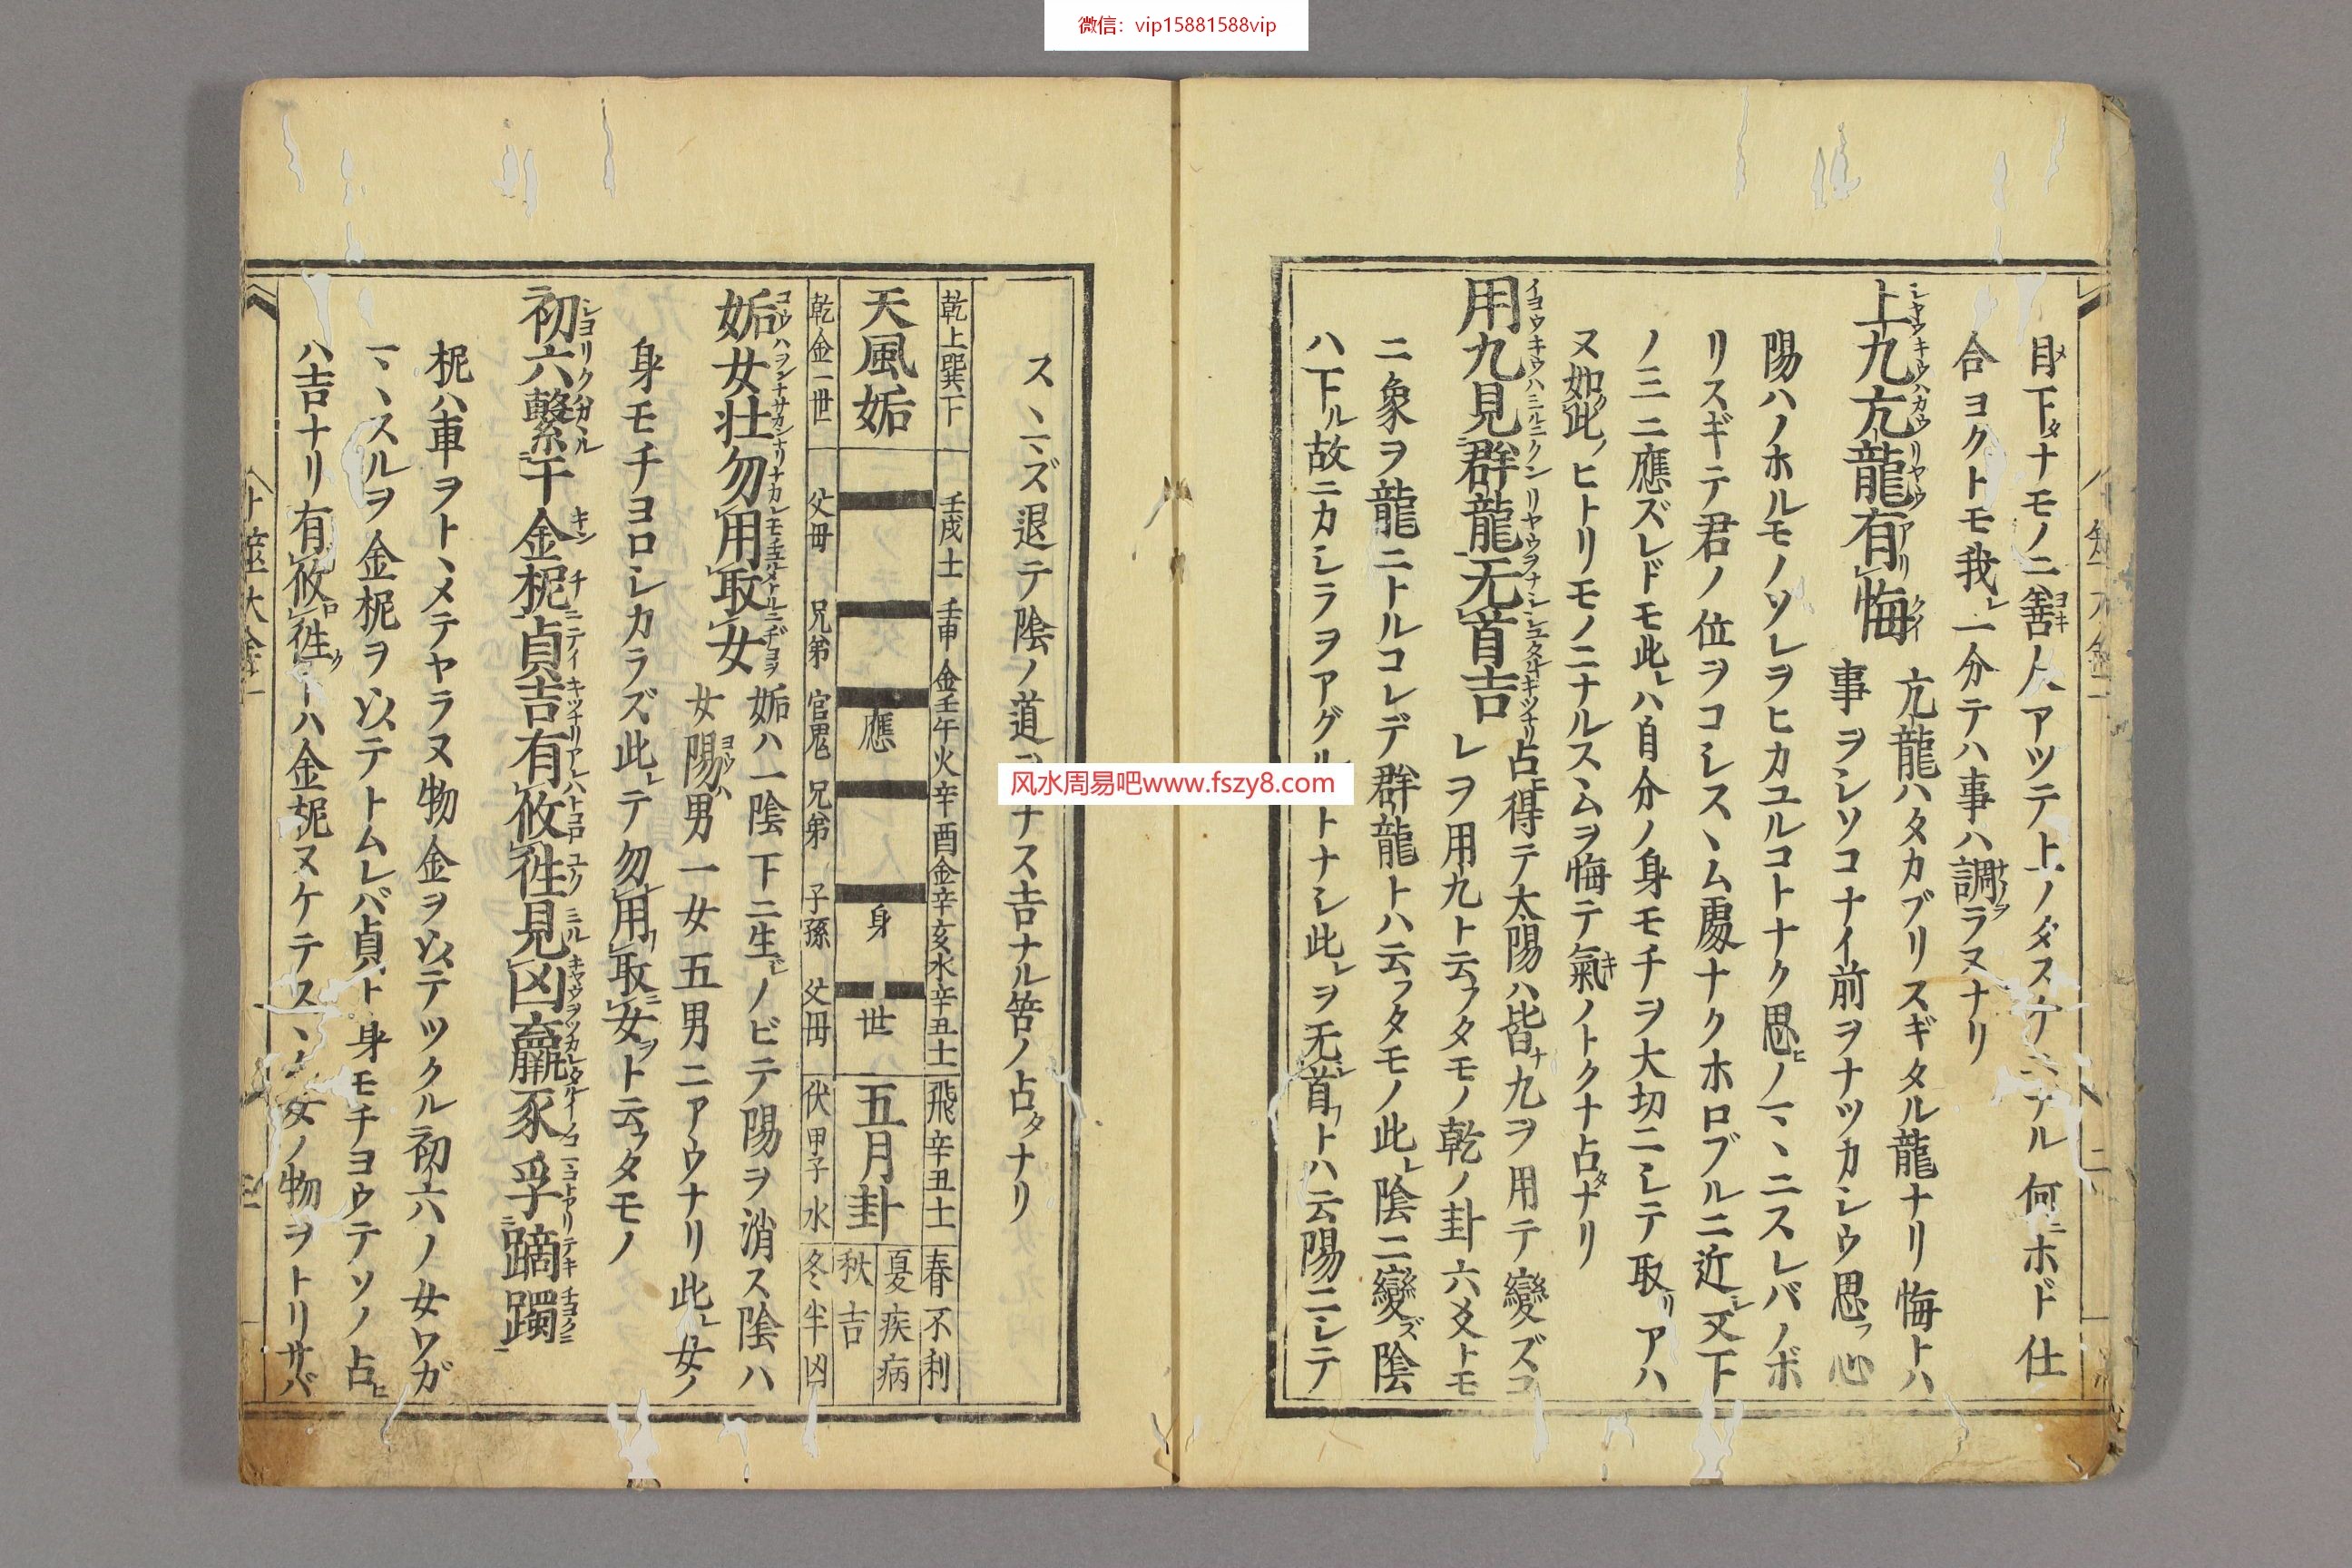 微信：vip15881588vip
目下タナモノニ善人アツテ上ノタスケ ル何ホド仕
合ヨクトモ我レ一分テハ事ハ調ラヌナリ
上九亢龍有悔 亢龍ハタカブリスギタル龍ナリ悔トハ
事ヲシソコナイ前ヲナツカシウ思フ心
陽ハノホルモノソレヲヒカユルコトナク思ヒノマヽニスレバノボ
リスギテ君ノ位ヲコシスヽム處ナクホロブルニ近シ又下
ノ三ニ應ズレドモ此レハ自分ノ身モチヲ大切ニシテ取リアハ
ヌ如此ノヒトリモノニナルスヽムヲ悔テ氣ノトクナ占タナリ
用九見群龍无首吉 占ニ得テ太陽ハ皆ナ九ヲ用テ變ズコ
レヲ用九ト云フタモノ乾ノ卦六爻トモ
ニ象ヲ龍ニトルコレデ群龍トハ云フタモノ此レ陰ニ變ズ陰
ハ下ル故ニカシラヲアグル トナシ此レヲ无首トハ云陽ニシテ
风水周易吧www.fszy8.com
スヽマズ退テ陰ノ道 ナス吉ナル筈ノ占タナリ
乾上巽下 壬戌土 壬申金 壬午火 辛酉金 辛亥水 辛丑土 飛辛丑土 春不利
夏疾病
天風姤 應 身 世 五月卦 秋吉
乾金一世 父母 兄弟 官鬼 兄弟 子孫 父母 伏甲子水 冬半凶
姤女壮勿用取女 姤ハ一陰下ニ生シノビテ陽ヲ消ス陰ハ
女陽ハ男一女五男ニアウナリ此レ女ノ
身モチヨロシカラズ此レテ勿用取女ヲト云フタモノ
初六繫于金柅貞吉有攸徃見凶羸豕孚蹢躅
柅ハ車ヲトヽメテヤラヌ物金ヲ以テツクル初六ノ女ワガ
マヽスルヲ金柅ヲ以テトムレバ貞ト身モチヨウテソノ占ヒ
ハ吉ナリ有攸徃トハ金柅ヌケテスヽム女ノ物ヲトリサバ